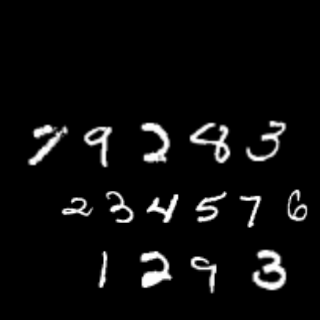 79283
234576
1293